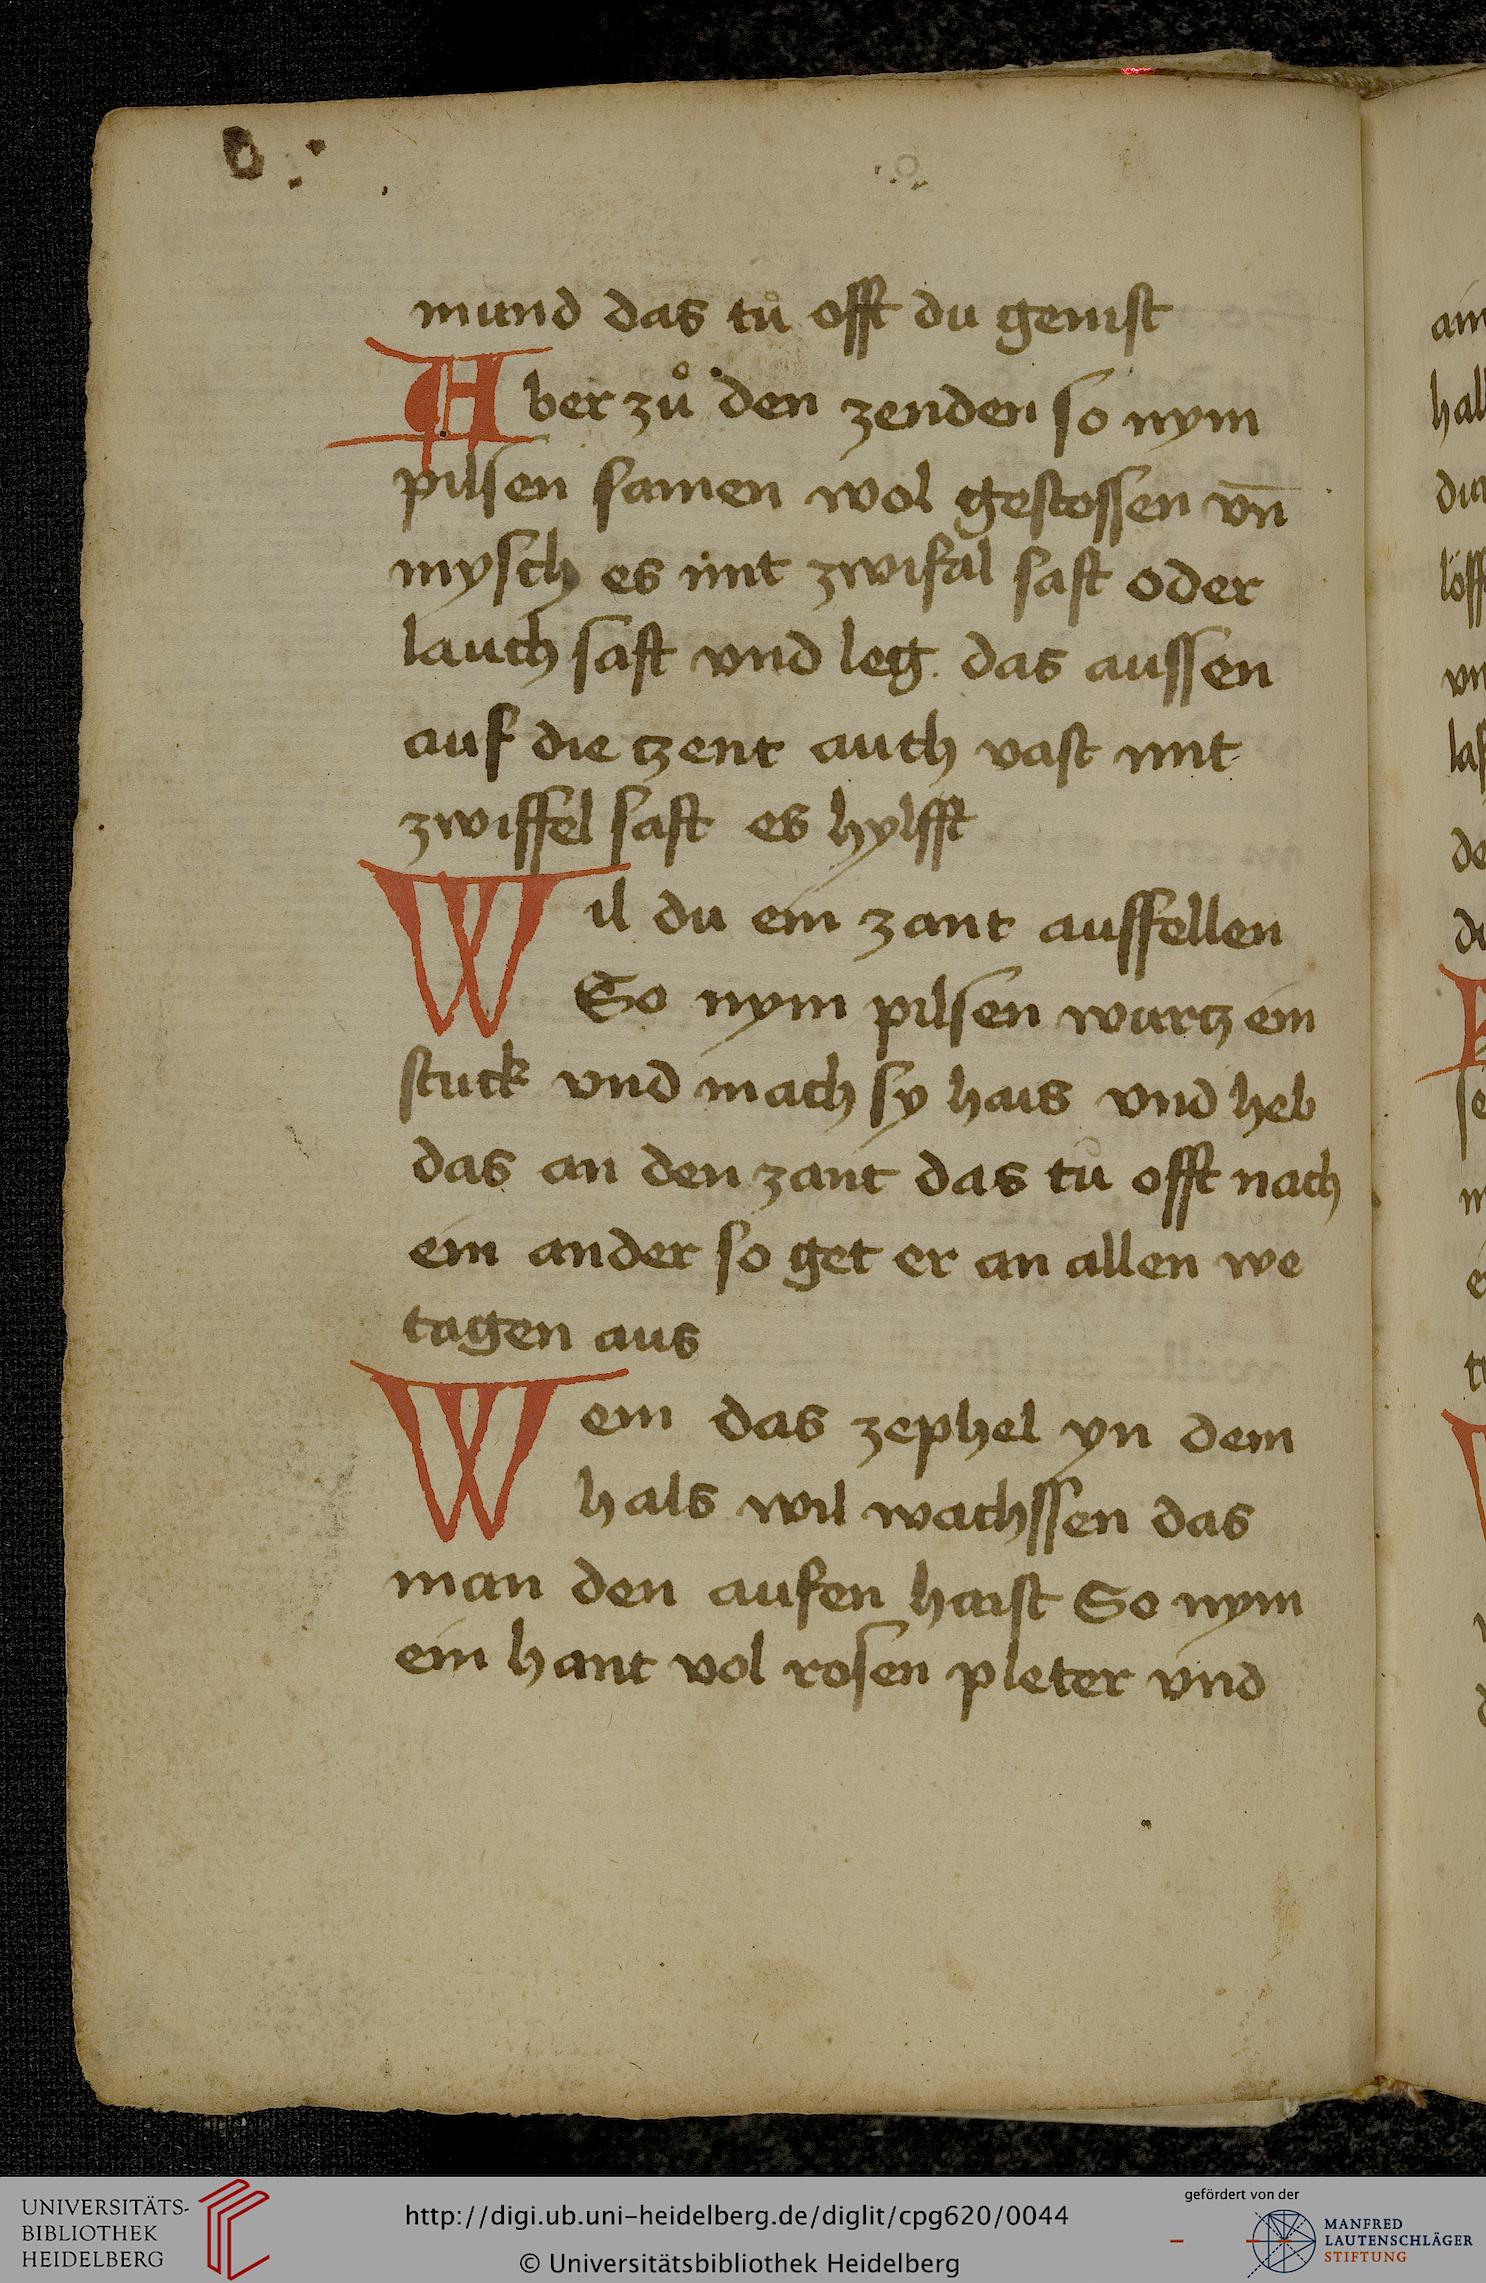 mund das tů offt du genist
Aber zů den zenden so nym
pilsen samen wol gestossen vn̄
mysch es mit zwifal saft oder
lauch saft vnd leg das aussen
auf die czent auch vast mit
zwiffel saft es hylfft
Wil du ein zant ausfellen
So nym pilsen wurcz ein
stuck vnd mach sy hais vnd heb
das an den zant das tů offt nach
ein ander so get er an allen we
tagen aus
Wem das zephel yn dem
hals wil wachssen das
man den aufen haist So nym
ein hant vol rosen pleter vnd
UNIVERSITÄTS-
BIBLIOTHEK
HEIDELBERG
http://digi.ub.uni-heidelberg.de/diglit/cpg620/0044
© Universitätsbibliothek Heidelberg
gefördert von der
MANFRED
LAUTENSCHLÄGER
STIFTUNG